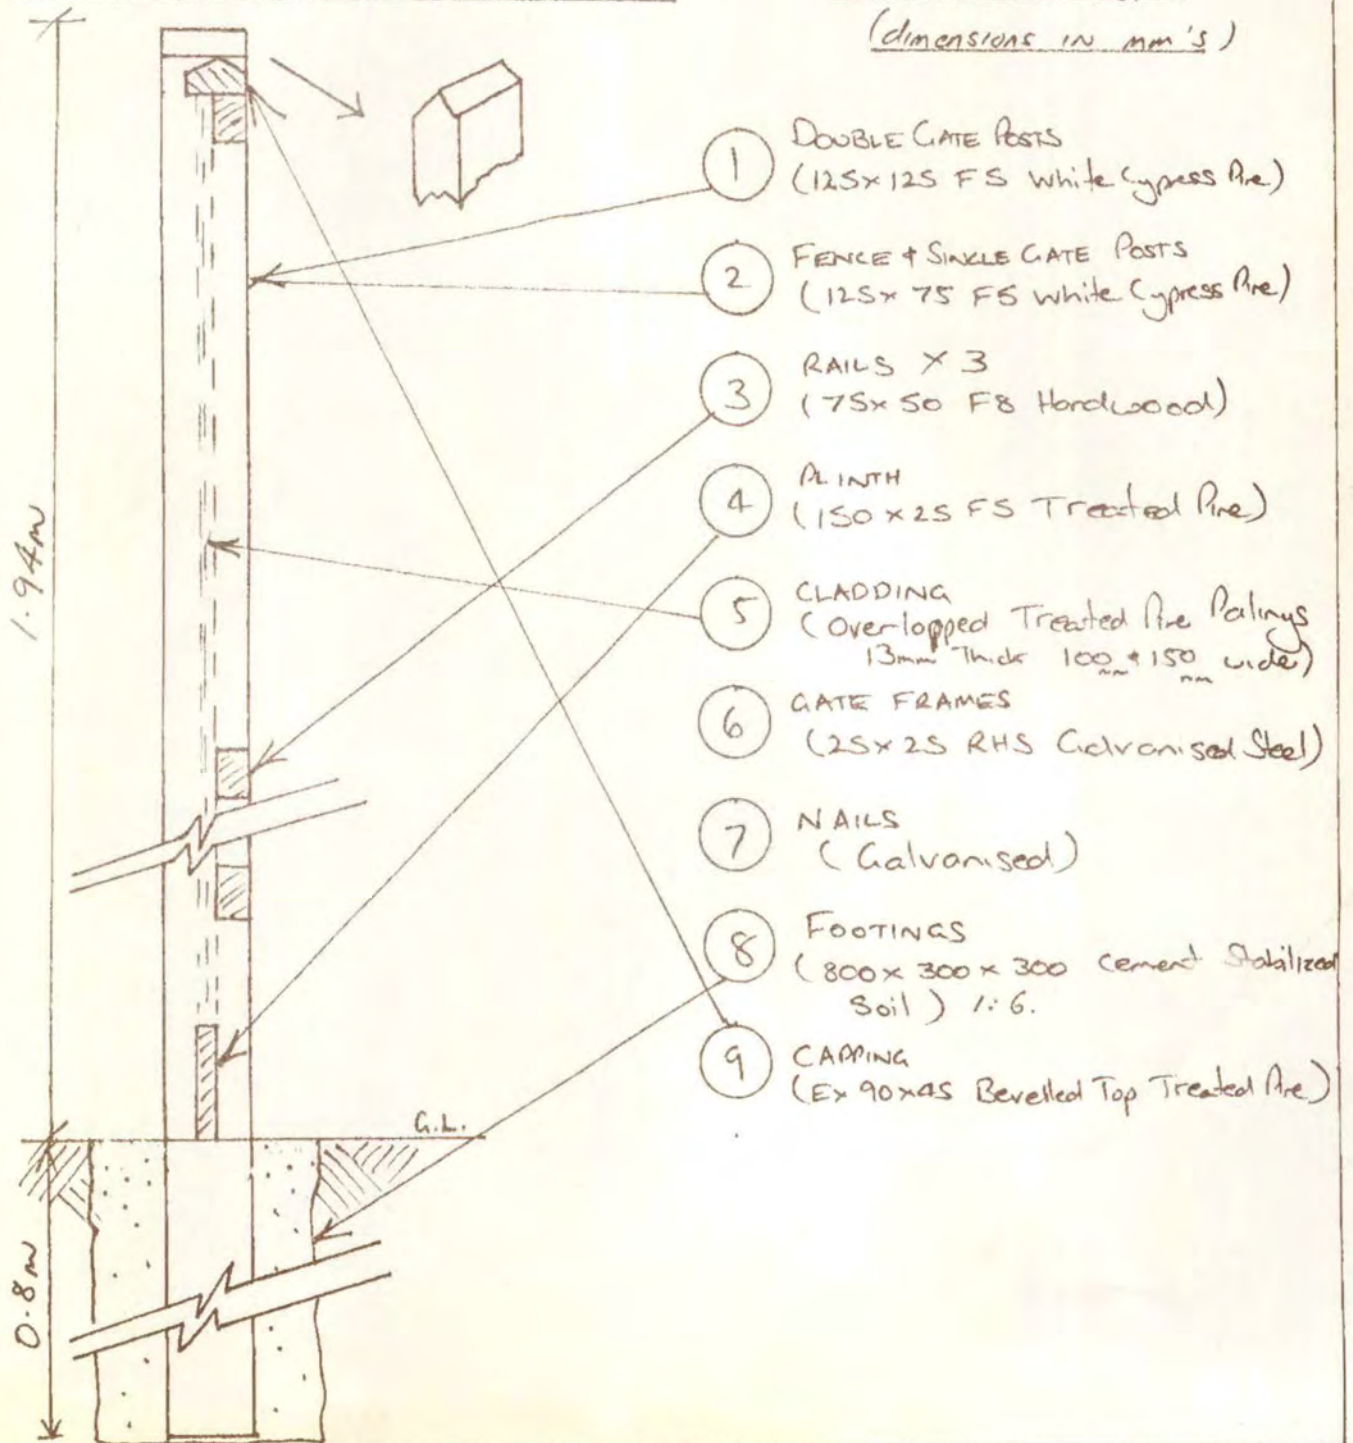 (dimensions IN mm's)
1
DOUBLE GATE POSTS
(125x125 F5 White Cypress Pine)
2
FENCE + SINGLE GATE POSTS
(125x 75 F5 White Cypress Pine)
3
RAILS X 3
(75x50 F8 Hardwood)
4
PLINTH
(150x25 F5 Treated Pine)
5
CLADDING
(Overlapped Treated Pine Palings
13mm Thick 100mm + 150mm wide)
6
GATE FRAMES
(25x25 RHS Galvanised Steel)
7
NAILS
(Galvanised)
8
FOOTINGS
(800x300x300 Cement Stabilized
Soil) 1:6.
9
CAPPING
(Ex 90x45 Bevelled Top Treated Pine)
1.94m
G.L.
0.8m